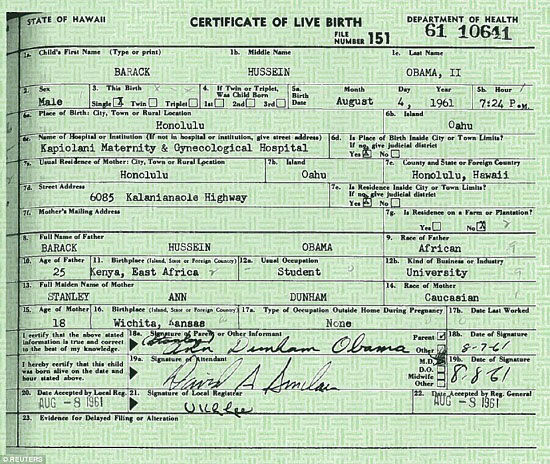 STATE OF HAWAII
CERTIFICATE OF LIVE BIRTH
DEPARTMENT OF HEALTH
FILE NUMBER 151
61 10641
1a. Child's First Name (Type or print)
1b. Middle Name
1c. Last Name
BARACK
HUSSEIN
OBAMA, II
2. Sex
Male
3. This Birth
Single X Twin Triplet
4. If Twin or Triplet, Was Child Born
1st 2nd 3rd
5a. Birth Date
Month Day Year
August 4, 1961
5b. Hour
7:24 P.M.
6a. Place of Birth: City, Town or Rural Location
Honolulu
6b. Island
Oahu
6c. Name of Hospital or Institution (If not in hospital or institution, give street address)
Kapiolani Maternity & Gynecological Hospital
6d. Is Place of Birth Inside City or Town Limits?
If no, give judicial district
Yes X No
7a. Usual Residence of Mother: City, Town or Rural Location
Honolulu
7b. Island
Oahu
7c. County and State or Foreign Country
Honolulu, Hawaii
7d. Street Address
6085 Kalanianaole Highway
7e. Is Residence Inside City or Town Limits?
If no, give judicial district
Yes X No
7f. Mother's Mailing Address
7g. Is Residence on a Farm or Plantation?
Yes No X
8. Full Name of Father
BARACK HUSSEIN OBAMA
9. Race of Father
African
10. Age of Father
25
11. Birthplace (Island, State or Foreign Country)
Kenya, East Africa
12a. Usual Occupation
Student
12b. Kind of Business or Industry
University
13. Full Maiden Name of Mother
STANLEY ANN DUNHAM
14. Race of Mother
Caucasian
15. Age of Mother
18
16. Birthplace (Island, State or Foreign Country)
Wichita, Kansas
17a. Type of Occupation Outside Home During Pregnancy
None
17b. Date Last Worked
I certify that the above stated
information is true and correct
to the best of my knowledge.
18a. Signature of Parent or Other Informant
(Stanley) Ann Dunham Obama
Parent
Other
18b. Date of Signature
8-7-61
I hereby certify that this child
was born alive on the date and
hour stated above.
19a. Signature of Attendant
David A Sinclair
M.D.
D.O.
Midwife
Other
19b. Date of Signature
8-8-61
20. Date Accepted by Local Reg.
AUG -8 1961
21. Signature of Local Registrar
U K L Lee
22. Date Accepted by Reg. General
AUG -8 1961
23. Evidence for Delayed Filing or Alteration
© REUTERS